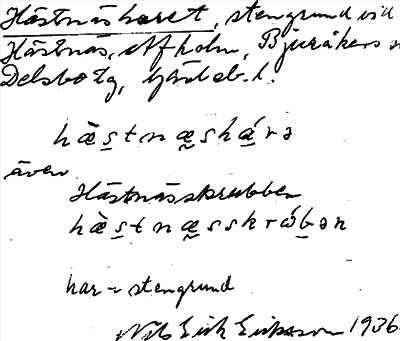 Hästnäsharet, stengrund vid
Hästnäs, Afholm, Bjuråkers
Delsbo tg, Gävleb. l.
hæ̀stnæshárə
även
Hästnässkrubben
hæ̀stnæsskrúbən
har = stengrund
Nils Erik Eriksson 1936.